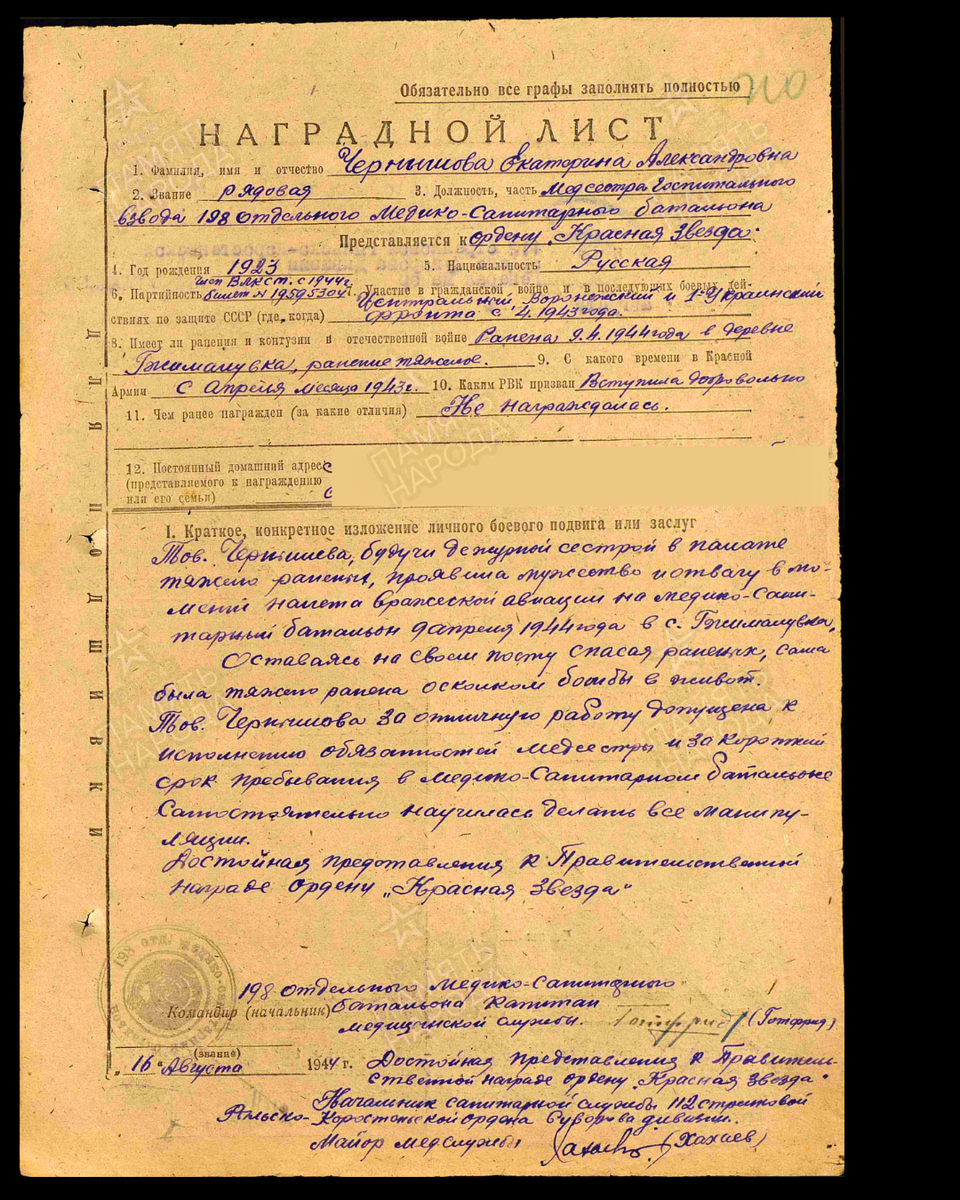 Обязательно все графы заполнять полностью
НАГРАДНОЙ ЛИСТ
1. Фамилия, имя и отчество Чернышова Екатерина Александровна
2. Звание рядовая 3. Должность, часть Медсестра Госпитального
взвода 198 отдельного Медико-Санитарного баталиона
Представляется к ордену "Красная Звезда"
4. Год рождения 1923 5. Национальность Русская
член ВЛКСМ. с 1944г.
6. Партийность билет № 19595304 7. Участие в гражданской войне и в последующих боевых дей-
Центральный, Воронежский и 1-й Украинский
ствиях по защите СССР (где, когда) фронта с 4.1943 года.
8. Имеет ли ранения и контузии в отечественной войне Ранена 9.4.1944 года в деревне
Гжималувка, ранение тяжелое. 9. С какого времени в Красной
Армии с Апреля месяца 1943г. 10. Каким РВК призван Вступила добровольно
11. Чем ранее награжден (за какие отличия) Не награждалась.
12. Постоянный домашний адрес
(представляемого к награждению
или его семьи)
I. Краткое, конкретное изложение личного боевого подвига или заслуг
Тов. Чернышева, будучи дежурной сестрой в палате
тяжело раненых, проявила мужество и отвагу в мо-
мент налета вражеской авиации на медико-сани-
тарный батальон 9 апреля 1944 года в с. Гжималувка,
Оставаясь на своем посту спасая раненых, сама
была тяжело ранена осколком бомбы в живот.
Тов. Чернышова за отличную работу допущена к
исполнению обязанностей медсестры и за короткий
срок пребывания в Медико-Санитарном батальоне
Самостоятельно научилась делать все манипу-
ляции.
Достойная предотавления к Правительственной
награде ордену „Красная Звезда"
198 отдельного Медико-Санитарного
Командир (начальник) батальона Капитан
медицинской службы. (Готфрид)
(звание)
"16" Августа 1944 г.
Достойная представления к Правитель-
ственной награде ордену "Красная Звезда"
Начальник санитарной службы 112 стрелковой
Рыльско-Коростенской ордена Суворова дивизии.
Майор медслужбы (Хахаев)
ДЛЯ ПОДШИВКИ
ПАМЯТЬ НАРОДА